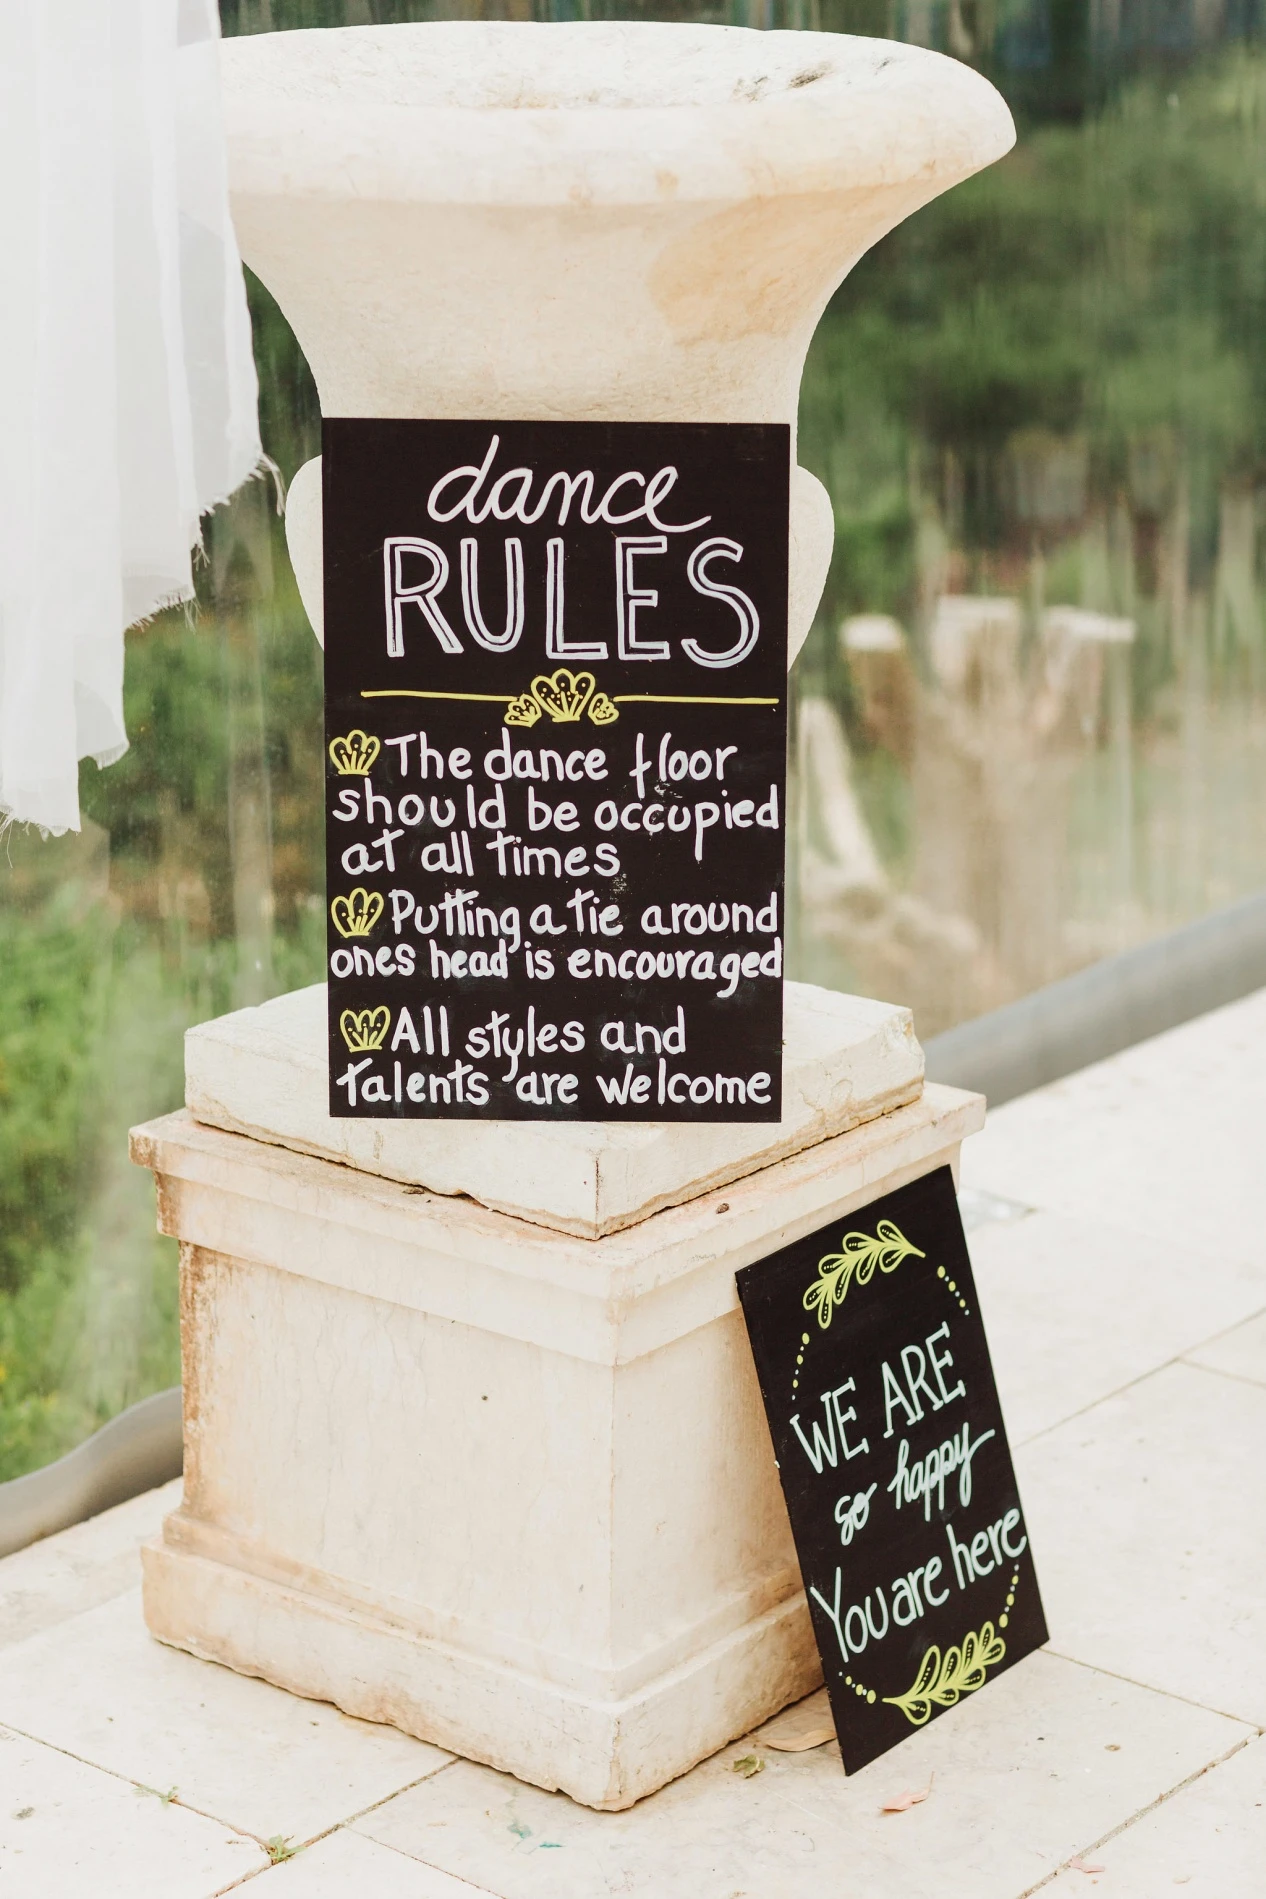 dance
RULES
The dance floor
should be occupied
at all times
Putting a tie around
ones head is encouraged
All styles and
talents are welcome
WE ARE
so happy
You are here